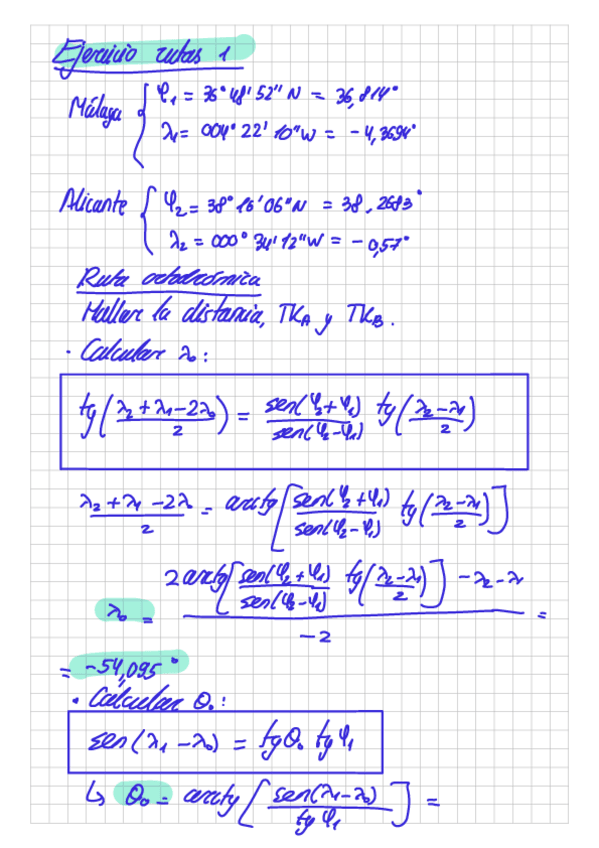 Ejercicio rutas 1
Málaga { φ₁ = 36° 48' 52'' N = 36,814°
λ₁ = 004° 22' 10'' W = -4,3694°
Alicante { φ₂ = 38° 16' 06'' N = 38,2683°
λ₂ = 000° 34' 12'' W = -0,57°
Ruta ortodrómica
Hallar la distancia, TKA y TKB.
· Calcular λ₀:
tg((λ₂ + λ₁ - 2λ₀)/2) = sen(φ₂+φ₁)/sen(φ₂-φ₁) tg((λ₂-λ₁)/2)
(λ₂ + λ₁ - 2λ)/2 = arctg[sen(φ₂+φ₁)/sen(φ₂-φ₁) tg((λ₂-λ₁)/2)]
λ₀ = (2arctg[sen(φ₂+φ₁)/sen(φ₂-φ₁) tg((λ₂-λ₁)/2)] - λ₂ - λ)/-2 =
= -54,095°
· Calcular θ₀:
sen(λ₁ - λ₀) = tgθ₀ tgφ₁
↳ θ₀ = arctg[sen(λ₁-λ₀)/tgφ₁] =